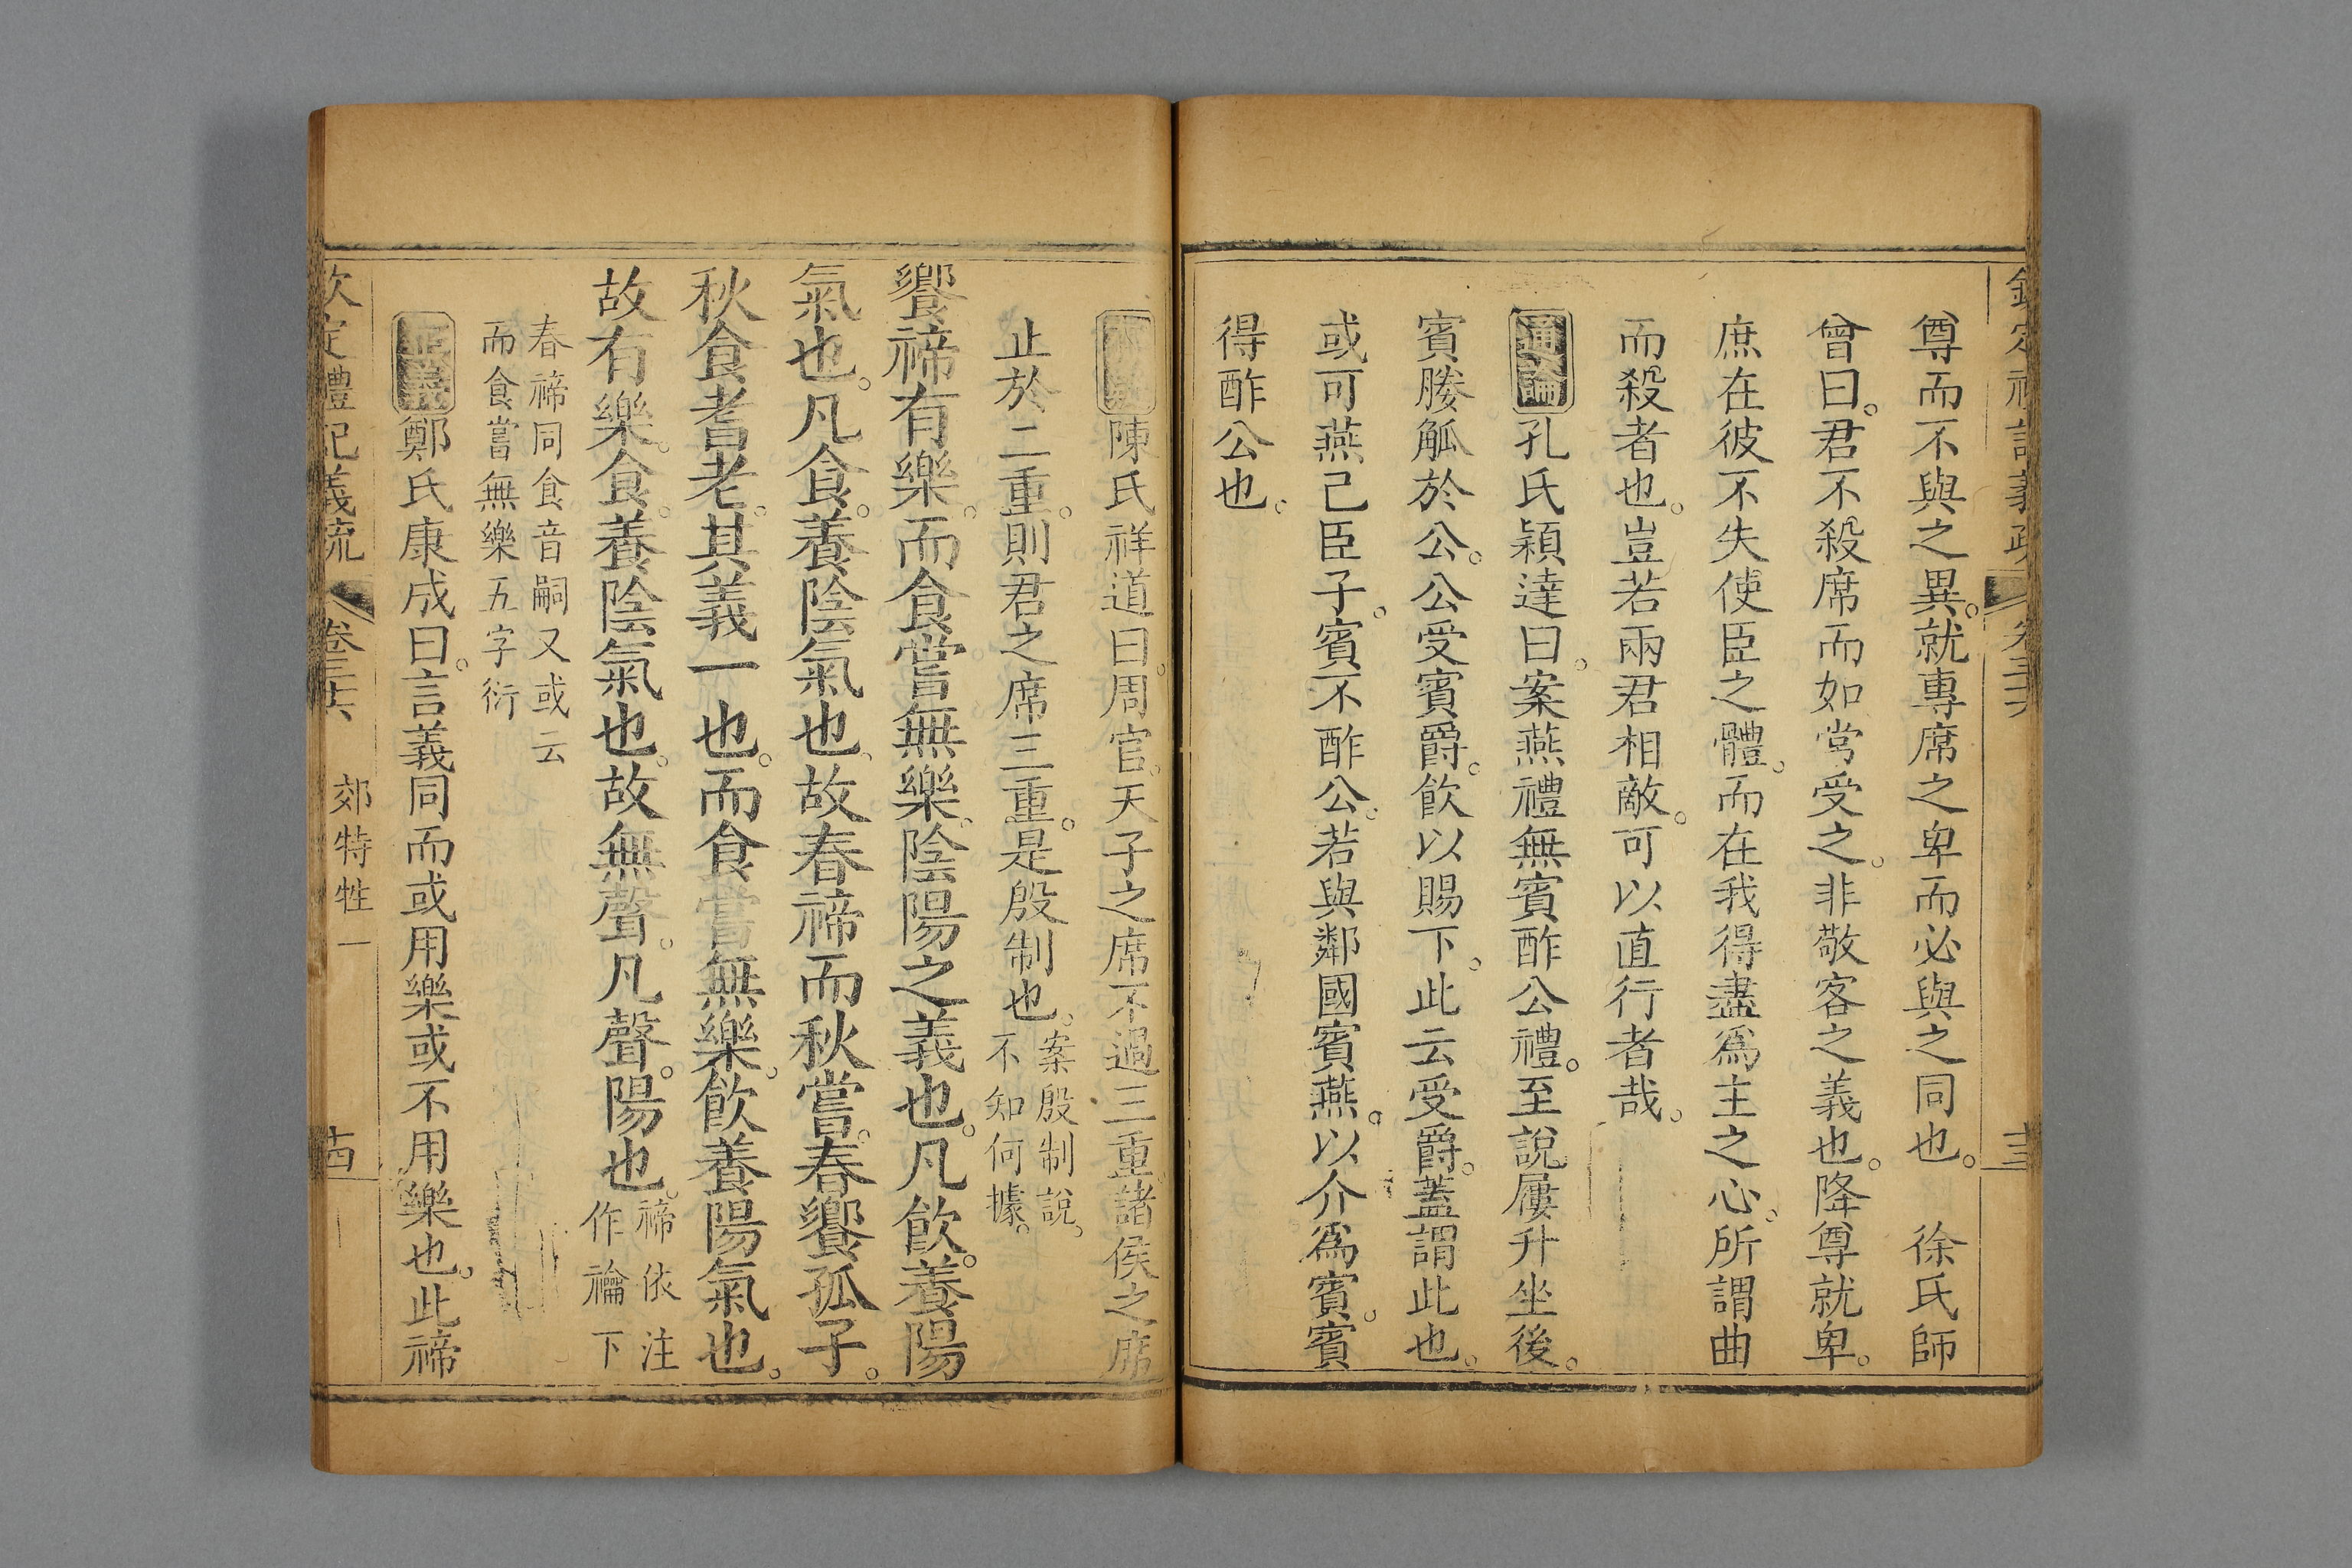 尊而不與之異。就專席之卑而必與之同也。 徐氏師
曾曰。君不殺席而如常受之。非敬客之義也。降尊就卑。
庶在彼不失使臣之體。而在我得盡爲主之心。所謂曲
而殺者也。豈若兩君相敵。可以直行者哉。
通論孔氏穎達曰。案燕禮無賓酢公禮。至說屨升坐後。
賓媵觚於公。公受賓爵。飲以賜下。此云受爵。蓋謂此也。
或可燕己臣子。賓不酢公。若與鄰國賓燕。以介爲賓。賓
得酢公也。
陳氏祥道曰。周官。天子之席不過三重。諸侯之席
止於二重。則君之席三重。是殷制也。案殷制說。
不知何據。
饗禘有樂。而食嘗無樂。陰陽之義也。凡飲。養陽
氣也。凡食。養陰氣也。故春禘而秋嘗。春饗孤子。
秋食耆老。其義一也。而食嘗無樂。飲養陽氣也。
故有樂。食。養陰氣也。故無聲。凡聲。陽也。禘依注
作禴下
春禘同食音嗣又或云
而食嘗無樂五字衍
正義鄭氏康成曰。言義同而或用樂或不用樂也。此禘
欽定禮記義疏 卷三十六 郊特牲一 十四